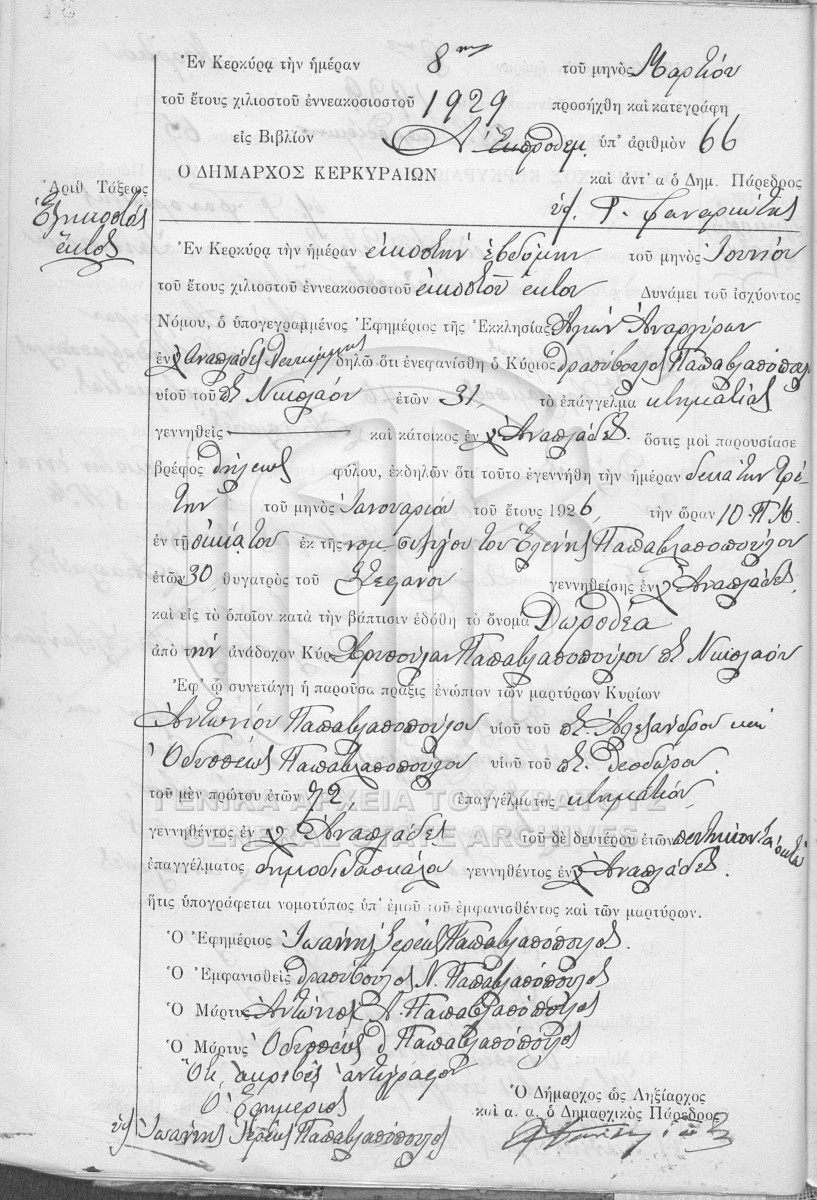 Ἐν Κερκύρᾳ τὴν ἡμέραν 8ην τοῦ μηνὸς Μαρτίου
τοῦ ἔτους χιλιοστοῦ ἐννεακοσιοστοῦ 1929 προσήχθη καὶ κατεγράφη
εἰς Βιβλίον Α' Ἐκπροθεμ. ὑπ' ἀριθμὸν 66
Ὁ ΔΗΜΑΡΧΟΣ ΚΕΡΚΥΡΑΙΩΝ καὶ ἀντ' α ὁ Δημ. Πάρεδρος
Ἀριθ. Τάξεως
Εἰκοστὸς
ἕκτος
ὑπ. Γ. Φαναριώτης
Ἐν Κερκύρᾳ τὴν ἡμέραν εἰκοστὴν ἑβδόμην τοῦ μηνὸς Ἰουνίου
τοῦ ἔτους χιλιοστοῦ ἐννεακοσιοστοῦ εἰκοστοῦ ἕκτου Δυνάμει τοῦ ἰσχύοντος
Νόμου, ὁ ὑπογεγραμμένος Ἐφημέριος τῆς Ἐκκλησίας Ἁγίων Ἀναργύρων
ἐν χ Ἀναπλάδες δηλῶ ὅτι ἐνεφανίσθη ὁ Κύριος Θρασύβουλος Παπαβλασόπουλος
υἱοῦ τοῦ πτ Νικολάου ἐτῶν 31, τὸ ἐπάγγελμα κτηματίας
γεννηθεὶς καὶ κάτοικος ἐν χ Ἀναπλάδες. ὅστις μοὶ παρουσίασε
βρέφος θήλεως φύλου, ἐκδηλῶν ὅτι τοῦτο ἐγεννήθη τὴν ἡμέραν δεκάτην τρί-
την τοῦ μηνὸς Ἰανουαρίου τοῦ ἔτους 1926, τὴν ὥραν 10 Π.Μ.
ἐν τῇ οἰκίᾳ του ἐκ τῆς νομ. συζύγου του Ἑλένης Παπαβλασοπούλου
ἐτῶν 30, θυγατρὸς τοῦ Στεφάνου γεννηθείσης ἐν χ Ἀναπλάδες,
καὶ εἰς τὸ ὁποῖον κατὰ τὴν βάπτισιν ἐδόθη τὸ ὄνομα Δωροθέα
ἀπὸ τὴν ἀνάδοχον Κύρ Χρυσούλαν Παπαβλασοπούλου πτ Νικολάου
Ἐφ' ᾧ συνετάγη ἡ παροῦσα πρᾶξις ἐνώπιον τῶν μαρτύρων Κυρίων
Ἀντωνίου Παπαβλασοπούλου υἱοῦ τοῦ πτ. Ἀλεξάνδρου καὶ
Ὀδυσσέως Παπαβλασοπούλου υἱοῦ τοῦ πτ. Θεοδώρου.
τοῦ μὲν πρώτου ἐτῶν 72, ἐπαγγέλματος κτηματίου,
ΓΕΝΙΚΑ ΑΡΧΕΙΑ ΤΟΥ ΚΡΑΤΟΥΣ
γεννηθέντος ἐν χ Ἀναπλάδες τοῦ δὲ δευτέρου ἐτῶν πεντήκοντα ὀκτώ
GENERAL STATE ARCHIVES
ἐπαγγέλματος δημοδιδασκάλου γεννηθέντος ἐν χ Ἀναπλάδες.
ἥτις ὑπογράφεται νομοτύπως ὑπ' ἐμοῦ τοῦ ἐμφανισθέντος καὶ τῶν μαρτύρων.
Ὁ Ἐφημέριος Ἰωάννης Ἱερεὺς Παπαβλασόπουλος.
Ὁ Ἐμφανισθεὶς Θρασύβουλος Ν. Παπαβλασόπουλος
Ὁ Μάρτυς Ἀντώνιος Α. Παπαβλασόπουλος
Ὁ Μάρτυς Ὀδυσσεὺς Θ Παπαβλασόπουλος
Ὅτι ἀκριβὲς ἀντίγραφον
Ὁ Ἐφημέριος
ὑπ. Ἰωάννης Ἱερεὺς Παπαβλασόπουλος
Ὁ Δήμαρχος ὡς Ληξίαρχος
καὶ α. α. ὁ Δημαρχικὸς Πάρεδρος